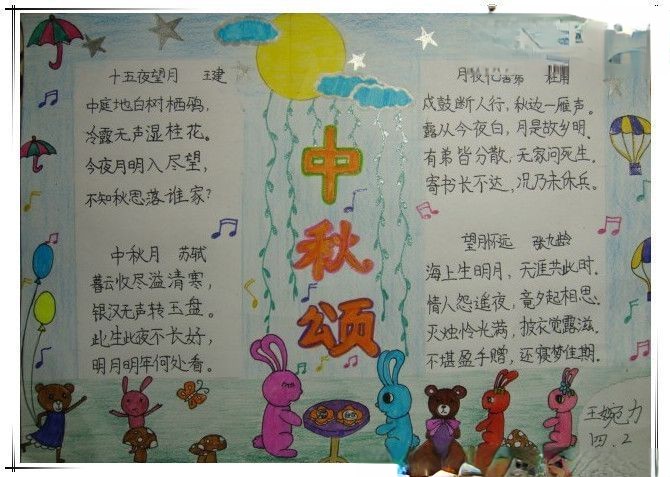 十五夜望月 王建
中庭地白树栖鸦,
冷露无声湿桂花。
今夜月明入尽望,
不知秋思落谁家?
中秋月 苏轼
暮云收尽溢清寒,
银汉无声转玉盘。
此生此夜不长好,
明月明年何处看。
中
秋
颂
月夜忆舍弟 杜甫
戍鼓断人行,秋边一雁声。
露从今夜白,月是故乡明.
有弟皆分散,无家问死生.
寄书长不达,况乃未休兵。
望月怀远 张九龄
海上生明月,天涯共此时.
情人怨遥夜,竟夕起相思.
灭烛怜光满,披衣觉露滋.
不堪盈手赠,还寝梦佳期.
四.2